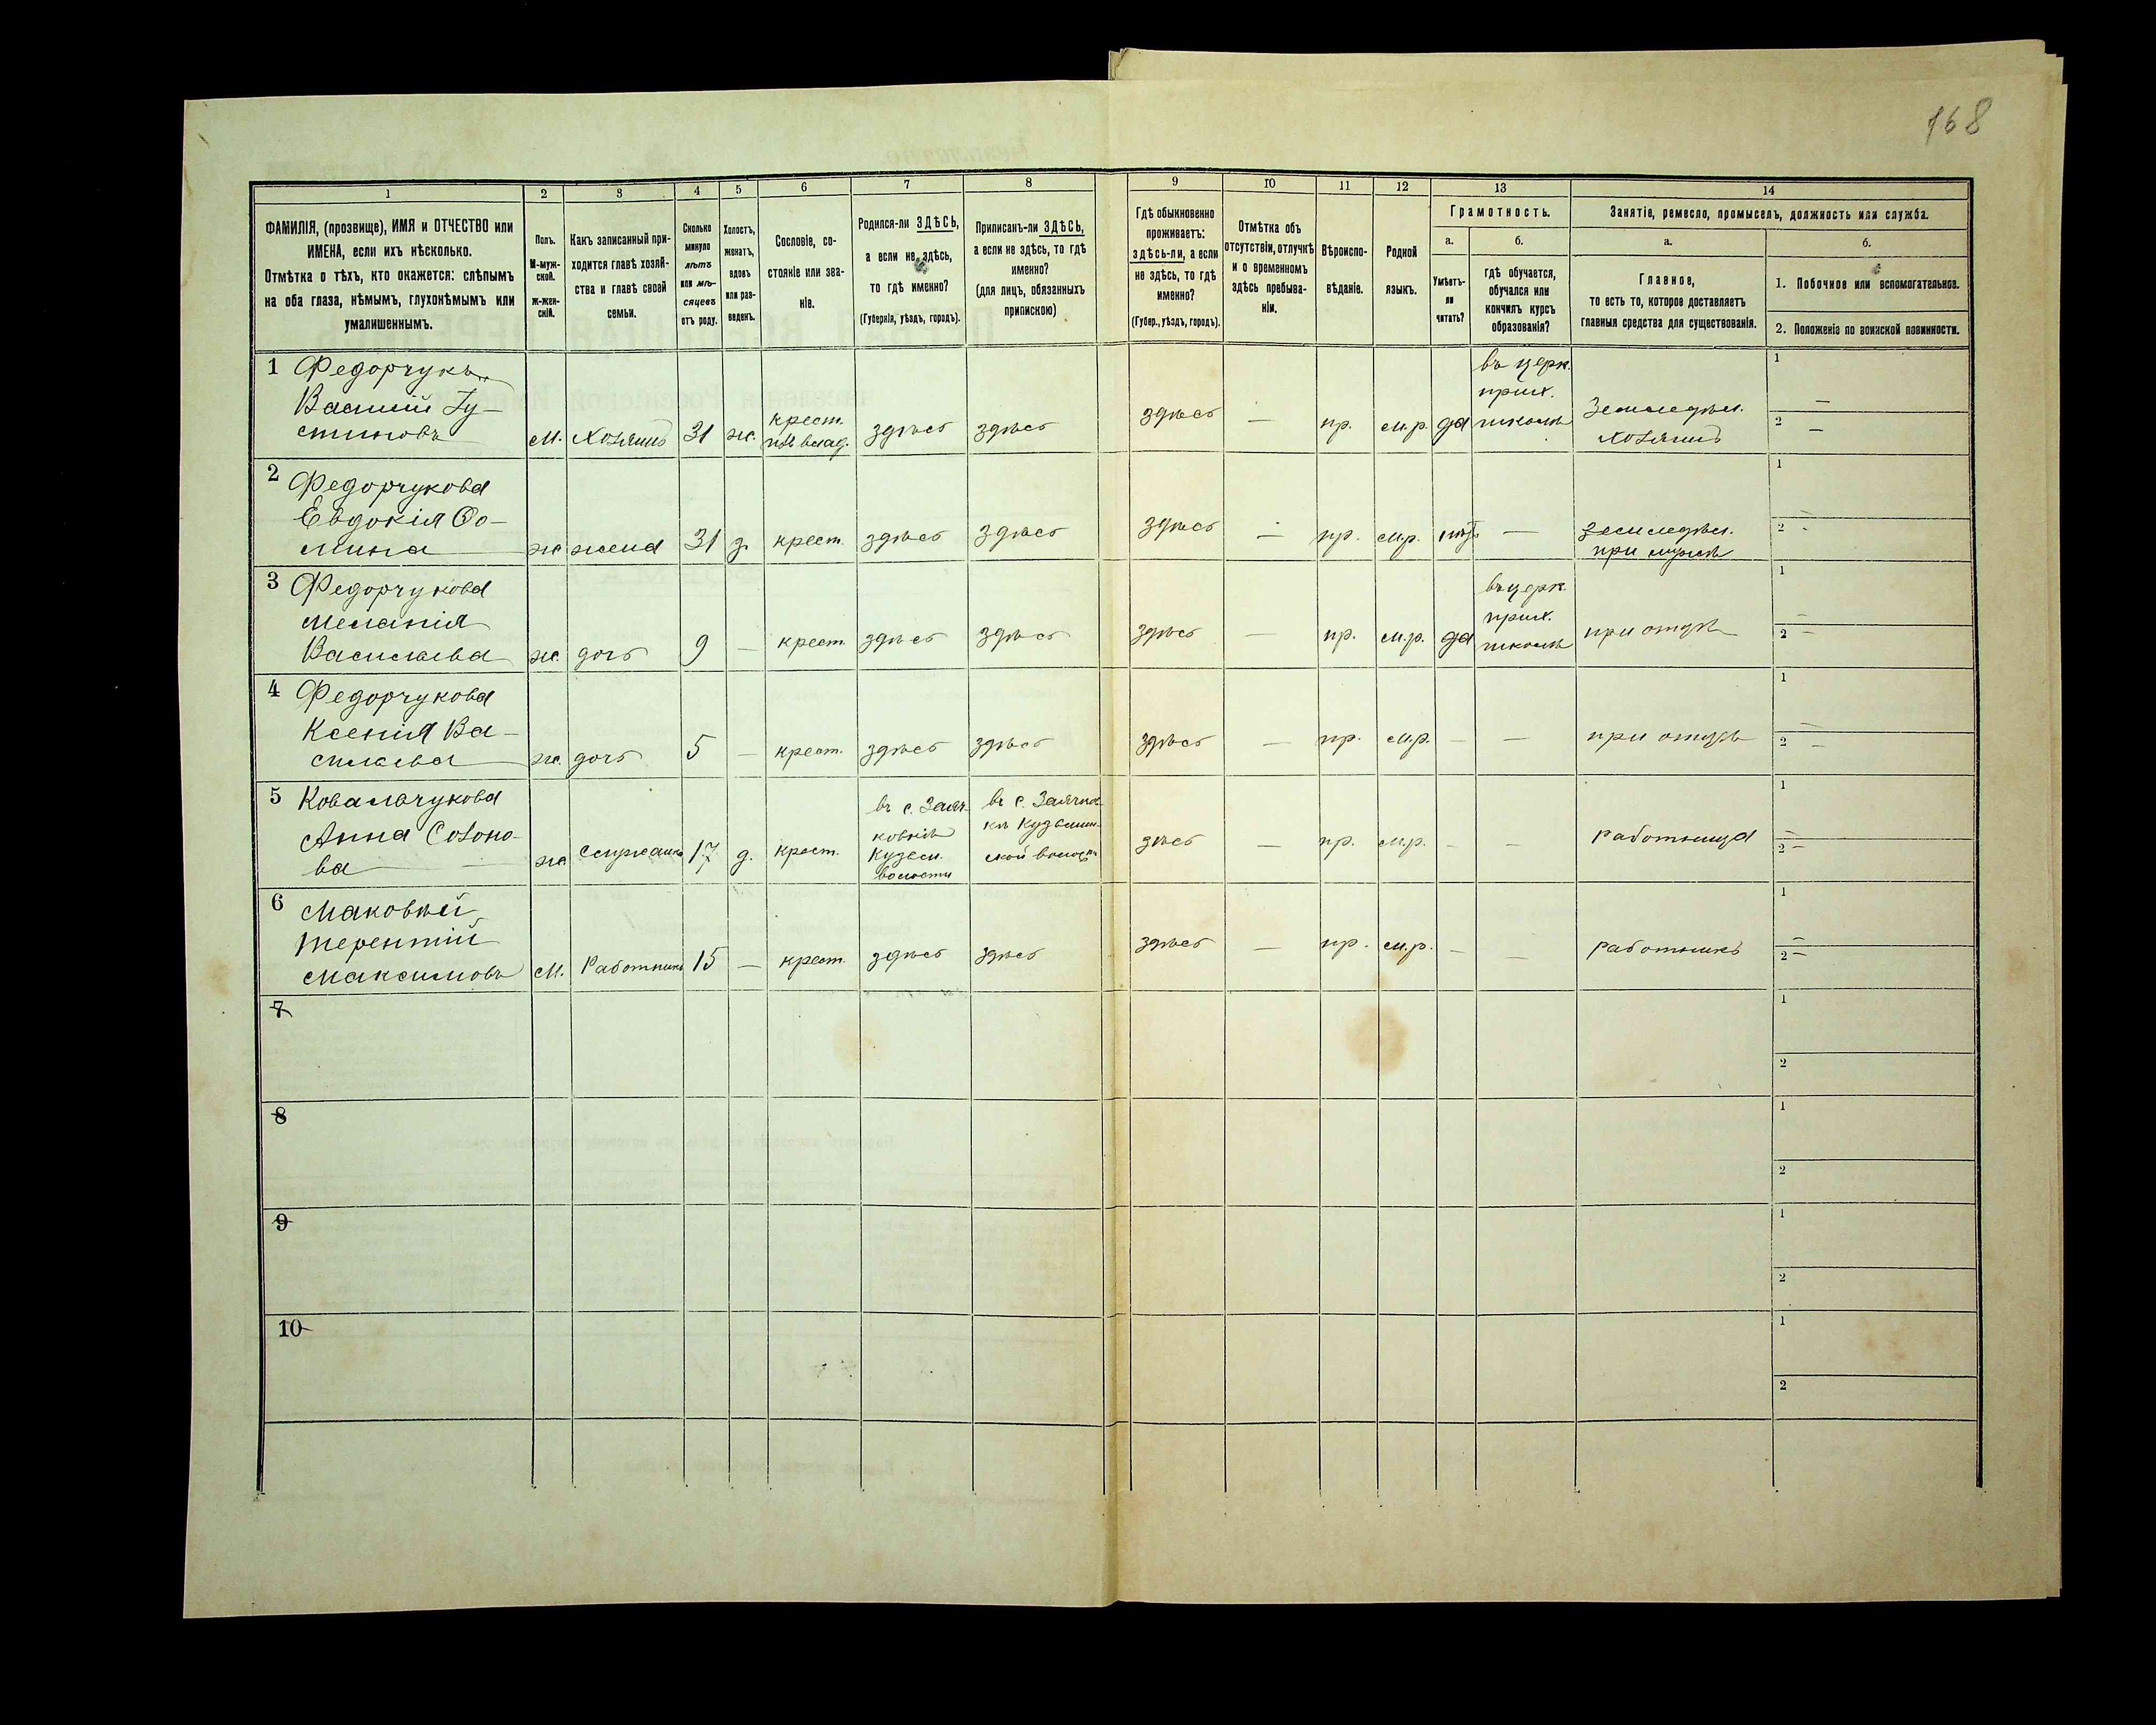 168
1 2 3 4 5 6 7 8 9 10 11 12 13 14
ФАМИЛІЯ, (прозвище), ИМЯ и ОТЧЕСТВО или
ИМЕНА, если ихъ нѣсколько.
Отмѣтка о тѣхъ, кто окажется: слѣпымъ
на оба глаза, нѣмымъ, глухонѣмымъ или
умалишеннымъ.
Полъ.
М-муж-
ской.
ж-жен-
скій.
Какъ записанный при-
ходится главѣ хозяй-
ства и главѣ своей
семьи.
Сколько
минуло
лѣтъ
или мѣ-
сяцевъ
отъ роду.
Холостъ,
женатъ,
вдовъ
или раз-
веденъ.
Сословіе, со-
стояніе или зва-
ніе.
Родился-ли ЗДѢСЬ,
а если не здѣсь,
то гдѣ именно?
(Губернія, уѣздъ, городъ).
Приписанъ-ли ЗДѢСЬ,
а если не здѣсь, то гдѣ
именно?
(для лицъ, обязанныхъ
припискою)
Гдѣ обыкновенно
проживаетъ:
здѣсь-ли, а если
не здѣсь, то гдѣ
именно?
(Губер., уѣздъ, городъ).
Отмѣтка объ
отсутствіи, отлучкѣ
и о временномъ
здѣсь пребыва-
ніи.
Вѣроиспо-
вѣданіе.
Родной
языкъ.
Грамотность.
а.
Умѣетъ-
ли
читать?
б.
гдѣ обучается,
обучался или
кончилъ курсъ
образованія?
Занятіе, ремесло, промыселъ, должность или служба.
а.
Главное,
то есть то, которое доставляетъ
главныя средства для существованія.
б.
1. Побочное или вспомогательное.
2. Положеніе по воинской повинности.
1 Федорчукъ
Василій Іу-
стиновъ
м.
Хозяинъ
31
ж.
крест.
влад.
здѣсь
здѣсь
здѣсь
—
пр.
м.р.
да
въ церк.
прих.
школѣ
Земледѣл.
Хозяинъ
1 —
2 —
2 Федорчукова
Евдокія Ѳо-
мина
ж
жена
31
з.
крест.
здѣсь
здѣсь
здѣсь
—
пр.
м.р.
—
земледѣл.
при мужѣ
1 —
2 -
3 Федорчукова
Меланія
Васильева
ж.
дочь
9
—
крест.
здѣсь
здѣсь
здѣсь
—
пр.
м.р.
да
въ церк.
прих.
школѣ
при отцѣ
1 —
2 —
4 Федорчукова
Ксенія Ва-
сильева
ж.
дочь
5
—
крест.
здѣсь
здѣсь
здѣсь
—
пр.
м.р.
—
—
при отцѣ
1 —
2 —
5 Ковальчукова
Анна Созоно-
ва
ж
Служанка
17
д.
крест.
въ с. Заяч-
ковкѣ
Кузьм.
волости
въ с. Заячков-
кѣ Кузьмин-
ской волости
здѣсь
—
пр.
м.р.
—
—
работница
1 —
2 —
6 Маковѣй
Терентій
Максимовъ
м.
Работникъ
15
—
крест.
здѣсь
здѣсь
здѣсь
—
пр.
м.р.
—
—
работникъ
1 —
2 —
7
1
2
8
1
2
9
1
2
10
1
2